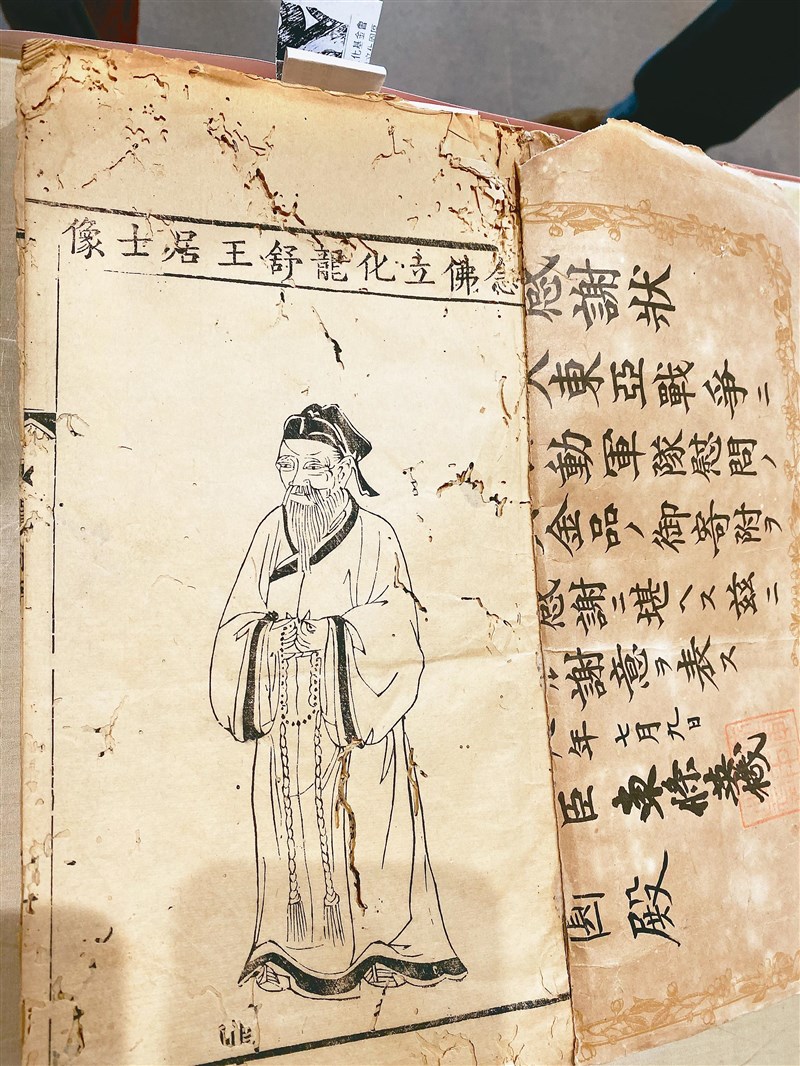 化基金會
念佛立化龍舒王居士像
感謝狀
大東亞戰爭ニ
動軍隊慰問ノ
金品ノ御寄附ヲ
感謝ニ堪ヘス茲ニ
謝意ヲ表ス
年七月九日
臣 東條英機
殿